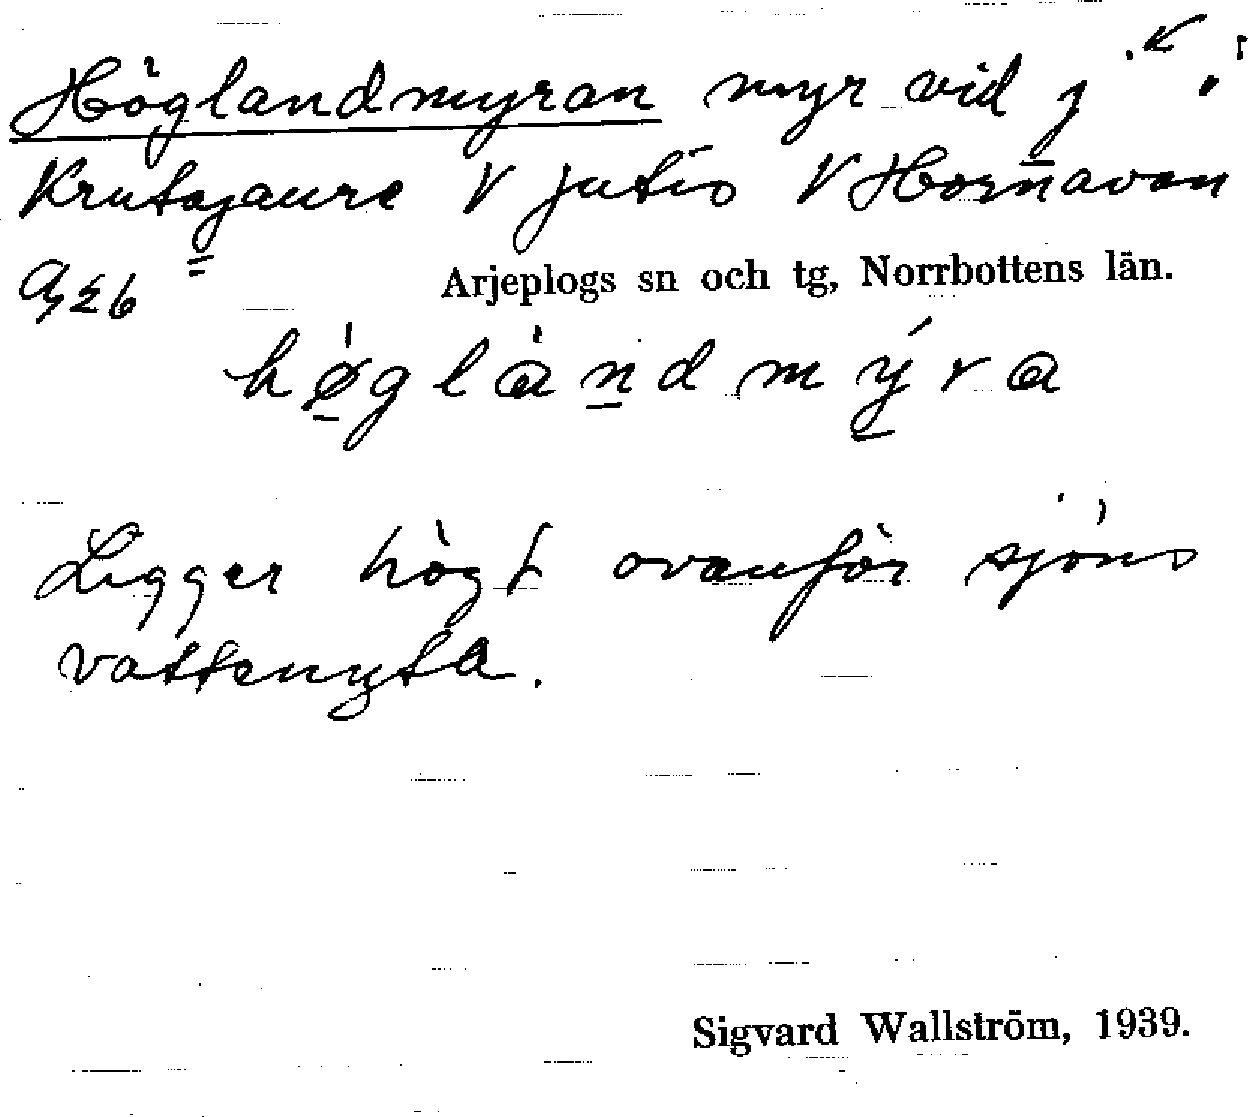 Höglandmyran myr vid
Krutajaure V Jutis V Hornavan
Arjeplogs sn och tg, Norrbottens län.
høglandmyra
Ligger högt ovanför sjöns
vattenyta.
Sigvard Wallström, 1939.